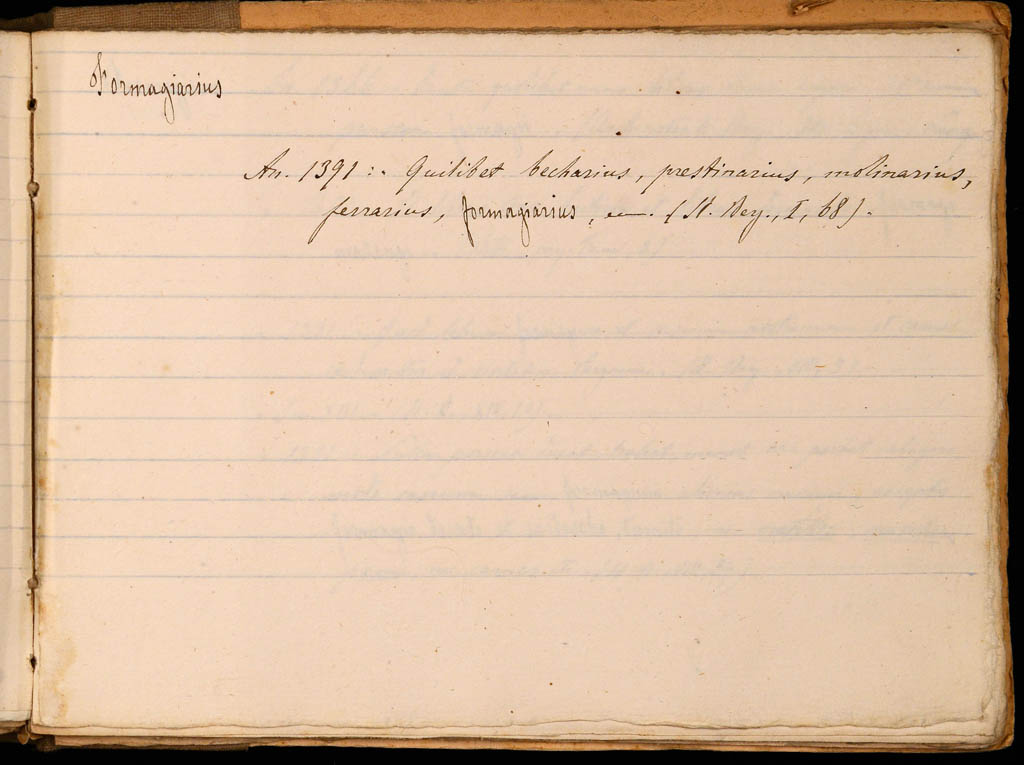 Formagiarius
An. 1391 :. Quilibet becharius, prestinarius, molinarius,
ferrarius, formagiarius, (St. Bey., I, 68).